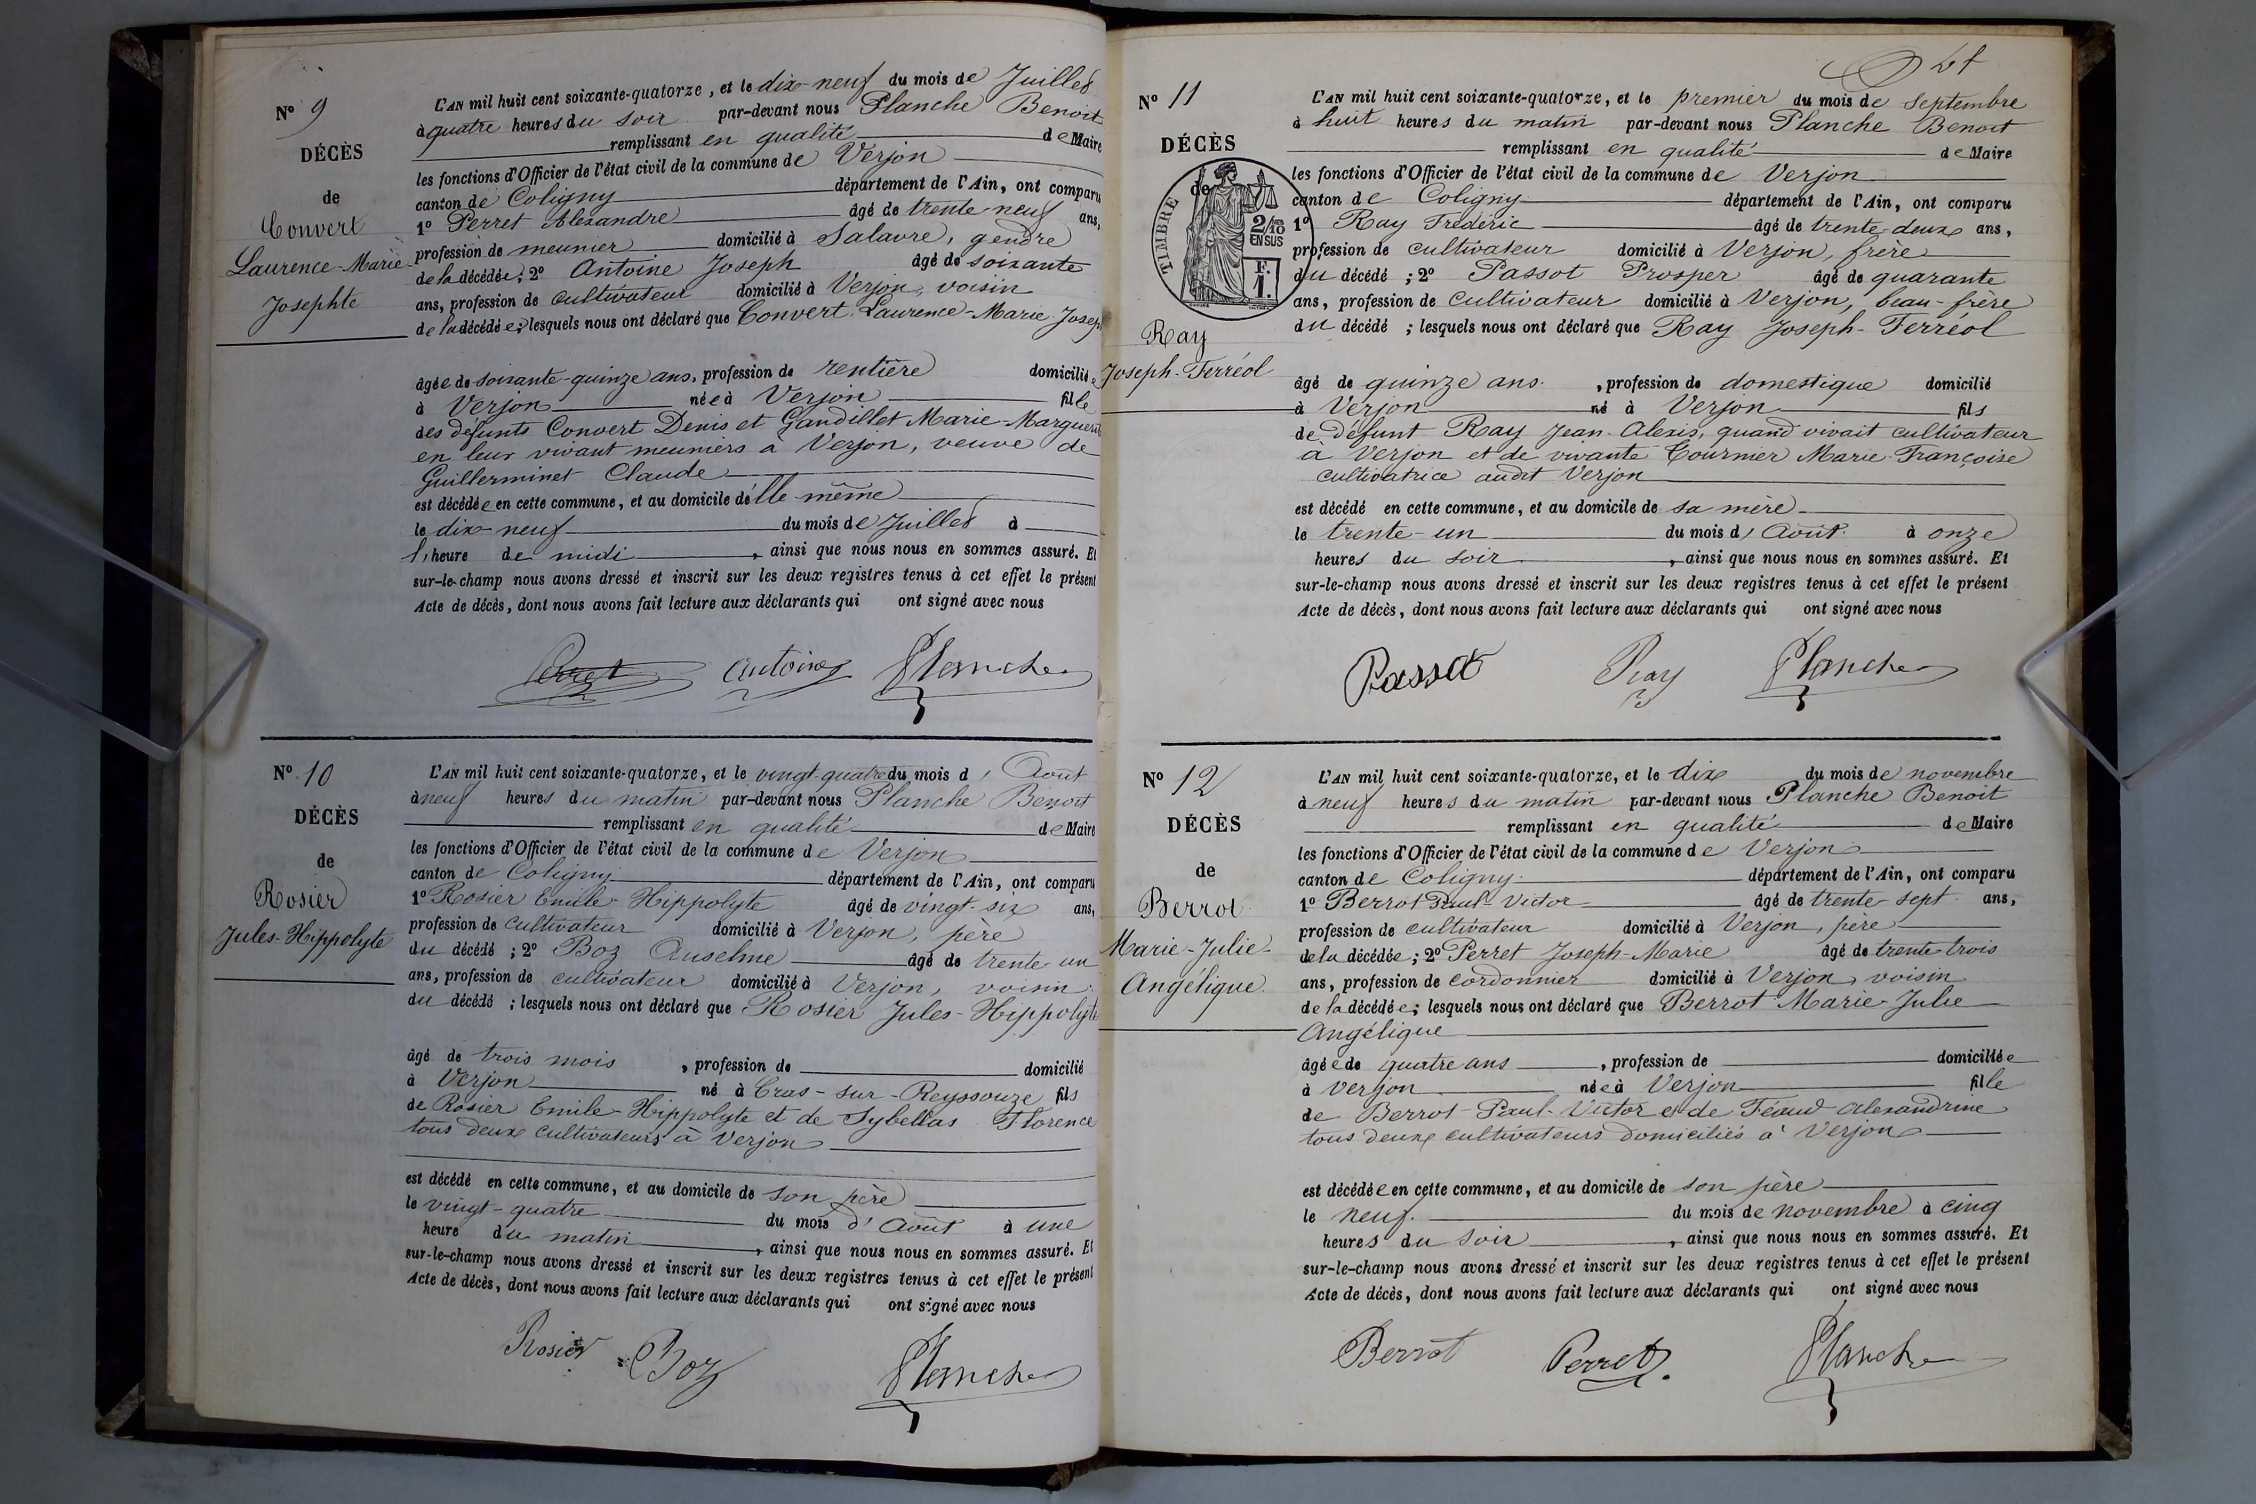 Nº 9
DÉCÈS
de
Convert
Laurence-Marie
Josephte
L'AN mil huit cent soixante-quatorze, et le dix-neuf du mois de Juillet
à quatre heures du soir par-devant nous Planche Benoit
remplissant en qualité de Maire
les fonctions d'Officier de l'état civil de la commune de Verjon
canton de Coligny département de l'Ain, ont comparu
1º Perret Alexandre âgé de trente neuf ans,
profession de meunier domicilié à Salavre, gendre
de la décédée; 2º Antoine Joseph âgé de soixante
ans, profession de cultivateur domicilié à Verjon, voisin
de la décédée; lesquels nous ont déclaré que Convert Laurence-Marie Josep
âgée de soixante-quinze ans, profession de rentière domiciliée
à Verjon née à Verjon fille
des défunts Convert Denis et Gandillet Marie-Marguerite
en leur vivant meuniers à Verjon, veuve de
Guillerminet Claude
est décédée en cette commune, et au domicile d'elle-même
le dix-neuf du mois de Juillet à
l'heure de midi, ainsi que nous nous en sommes assuré. Et
sur-le-champ nous avons dressé et inscrit sur les deux registres tenus à cet effet le présent
Acte de décès, dont nous avons fait lecture aux déclarants qui ont signé avec nous
Perret Antoine Planche
Nº 10
DÉCÈS
de
Rosier
Jules-Hippolyte
L'AN mil huit cent soixante-quatorze, et le vingt-quatre du mois d'Août
à neuf heures du matin par-devant nous Planche Benoit
remplissant en qualité de Maire
les fonctions d'Officier de l'état civil de la commune de Verjon
canton de Coligny département de l'Ain, ont comparu
1º Rosier Emile-Hippolyte âgé de vingt-six ans,
profession de cultivateur domicilié à Verjon, père
du décédé; 2º Boz Anselme âgé de trente un
ans, profession de cultivateur domicilié à Verjon, voisin
du décédé; lesquels nous ont déclaré que Rosier Jules-Hippolyte
âgé de trois mois, profession de domicilié
à Verjon né à Cras-sur-Reyssouze fils
de Rosier Emile-Hippolyte et de Sybellas Florence
tous deux cultivateurs à Verjon
est décédé en cette commune, et au domicile de son père
le vingt-quatre du mois d'Août à une
heure du matin, ainsi que nous nous en sommes assuré. Et
sur-le-champ nous avons dressé et inscrit sur les deux registres tenus à cet effet le présent
Acte de décès, dont nous avons fait lecture aux déclarants qui ont signé avec nous
Rosier Boz Planche
Nº 11
DÉCÈS
de
TIMBRE
2/10
EN SUS
F.
1.
Ray
Joseph-Ferréol
L'AN mil huit cent soixante-quatorze, et le premier du mois de septembre
à huit heures du matin par-devant nous Planche Benoit
remplissant en qualité de Maire
les fonctions d'Officier de l'état civil de la commune de Verjon
canton de Coligny département de l'Ain, ont comparu
1º Ray Frédéric âgé de trente deux ans,
profession de cultivateur domicilié à Verjon, frère
du décédé; 2º Passot Prosper âgé de quarante
ans, profession de cultivateur domicilié à Verjon, beau-frère
du décédé; lesquels nous ont déclaré que Ray Joseph-Ferréol
âgé de quinze ans, profession de domestique domicilié
à Verjon né à Verjon fils
de défunt Ray Jean-Alexis, quand vivait cultivateur
à Verjon et de vivante Tournier Marie-Françoise
cultivatrice audit Verjon
est décédé en cette commune, et au domicile de sa mère
le trente-un du mois d'Août à onze
heures du soir, ainsi que nous nous en sommes assuré. Et
sur-le-champ nous avons dressé et inscrit sur les deux registres tenus à cet effet le présent
Acte de décès, dont nous avons fait lecture aux déclarants qui ont signé avec nous
Passot Ray Planche
Nº 12
DÉCÈS
de
Berrot
Marie-Julie-
Angélique
L'AN mil huit cent soixante-quatorze, et le dix du mois de novembre
à neuf heures du matin par-devant nous Planche Benoit
remplissant en qualité de Maire
les fonctions d'Officier de l'état civil de la commune de Verjon
canton de Coligny département de l'Ain, ont comparu
1º Berrot Paul-Victor âgé de trente-sept ans,
profession de cultivateur domicilié à Verjon, père
de la décédée; 2º Perret Joseph-Marie âgé de trente-trois
ans, profession de cordonnier domicilié à Verjon, voisin
de la décédée; lesquels nous ont déclaré que Berrot Marie-Julie
Angélique
âgée de quatre ans, profession de domiciliée
à Verjon née à Verjon fille
de Berrot Paul-Victor et de Féaud Alexandrine
tous deux cultivateurs domiciliés à Verjon
est décédée en cette commune, et au domicile de son père
le neuf du mois de novembre à cinq
heures du soir, ainsi que nous nous en sommes assuré. Et
sur-le-champ nous avons dressé et inscrit sur les deux registres tenus à cet effet le présent
Acte de décès, dont nous avons fait lecture aux déclarants qui ont signé avec nous
Berrot Perret Planche